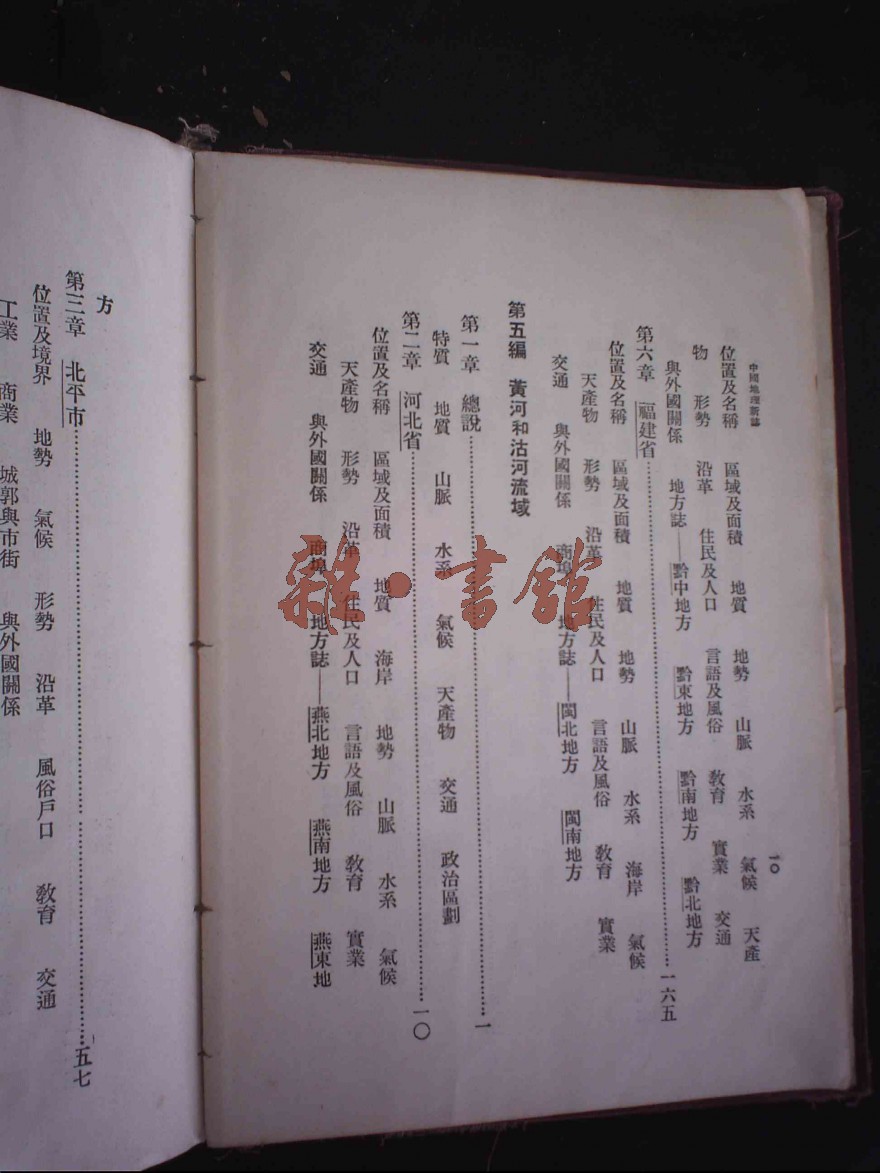 中國地理新誌
一〇
位置及名稱 區域及面積 地質 地勢 山脈 水系 氣候 天產
物 形勢 沿革 住民及人口 言語及風俗 教育 實業 交通
與外國關係 地方誌——黔中地方 黔東地方 黔南地方 黔北地方
第六章 福建省……一六五
位置及名稱 區域及面積 地質 地勢 山脈 水系 海岸 氣候
天產物 形勢 沿革 住民及人口 言語及風俗 教育 實業
交通 與外國關係 商埠 地方誌——閩北地方 閩南地方
第五編 黃河和沽河流域
第一章 總說……一
特質 地質 山脈 水系 氣候 天產物 交通 政治區劃
第二章 河北省……一〇
位置及名稱 區域及面積 地質 海岸 地勢 山脈 水系 氣候
天產物 形勢 沿革 住民及人口 言語及風俗 教育 實業
交通 與外國關係 商埠 地方誌——燕北地方 燕南地方 燕東地
方
第三章 北平市……五七
位置及境界 地勢 氣候 形勢 沿革 風俗戶口 教育 交通
工業 商業 城郭與市街 與外國關係
雜·書館